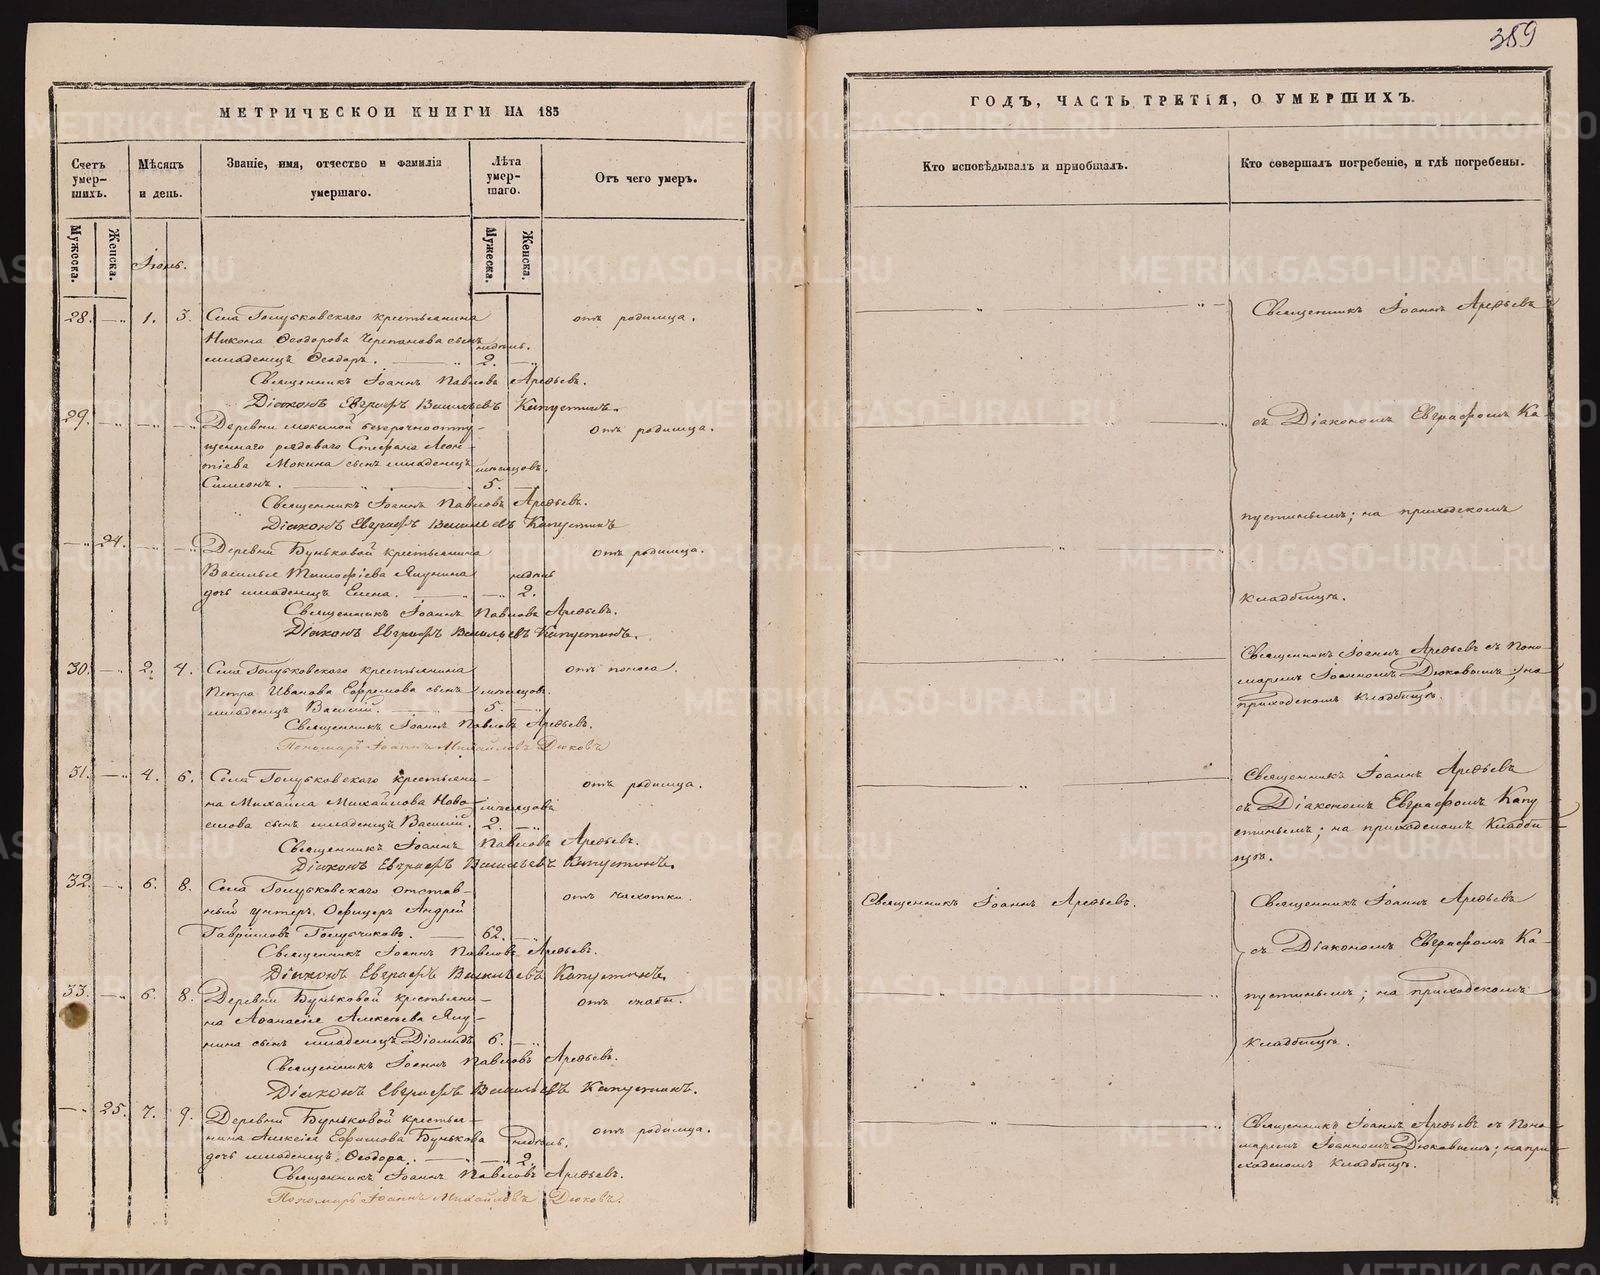 359
МЕТРИЧЕСКОИ КНИГИ НА 185
ГОДЪ, ЧАСТЬ ТРЕТІЯ, О УМЕРШИХЪ.
Счетъ умер-шихъ.
Мѣсяцъ и день.
Званіе, имя, отчество и фамилія умершаго.
Лѣта умер-шаго.
Отъ чего умеръ.
Кто исповѣдывалъ и пріобщалъ.
Кто совершалъ погребеніе, и гдѣ погребены.
Мужеска.
Женска.
Мужеска.
Женска.
Іюнь.
28. 1. 3. Села Голубковскаго крестьянина отъ родимца.
Никона Ѳеодорова Черепанова сынъ недѣль.
младенецъ Ѳеодоръ. 2.
Священникъ Іоаннъ Павловъ Арефьевъ.
Діаконъ Евграфъ Васильевъ Капустинъ.
29. Деревни Мокиной безсрочноотпу- отъ родимца.
щеннаго рядоваго Стефана Леон-
тіева Мокина сынъ младенецъ мѣсяцовъ.
Симеонъ. 5.
Священникъ Іоаннъ Павловъ Арефьевъ.
Діаконъ Евграфъ Васильевъ Капустинъ
24. Деревни Буньковой крестьянина отъ родимца.
Василья Тимофіева Якунина недѣль
дочь младенецъ Елена. 2.
Священникъ Іоаннъ Павловъ Арефьевъ.
Діаконъ Евграфъ Васильевъ Капустинъ.
30. 2. 4. Села Голубковскаго крестьянина отъ поноса.
Петра Иванова Ефремова сынъ мѣсяцовъ
младенецъ Василій. 5.
Священникъ Іоаннъ Павловъ Арефьевъ.
Пономарь Іоаннъ Михайловъ Дюковъ
31. 4. 6. Села Голубковскаго крестьяни- отъ родимца.
на Михайла Михайлова Ново- мѣсяцовъ
селова сынъ младенецъ Василій. 2.
Священникъ Іоаннъ Павловъ Арефьевъ.
Діаконъ Евграфъ Васильевъ Капустинъ.
32. 6. 8. Села Голубковскаго отстав- отъ чахотки.
ный унтеръ Офицеръ Андрей
Гавріиловъ Голубчиковъ. 62.
Священникъ Іоаннъ Павловъ Арефьевъ.
Діаконъ Евграфъ Васильевъ Капустинъ.
33. 6. 8. Деревни Буньковой крестьяни- отъ
на Аѳанасія Алексѣева Яку-
нина сынъ младенецъ Діомидъ 6.
Священникъ Іоаннъ Павловъ Арефьевъ.
Діаконъ Евграфъ Васильевъ Капустинъ.
25. 7. 9. Деревни Буньковой крестья- отъ родимца.
нина Алексія Ефимова Бунькова недѣль.
дочь младенецъ Ѳеодора. 2.
Священникъ Іоаннъ Павловъ Арефьевъ.
Пономарь Іоаннъ Михайловъ Дюковъ.
Священникъ Іоаннъ Арефьевъ
съ Діакономъ Евграфомъ Ка-
пустинымъ; на приходскомъ
кладбищѣ.
Священникъ Іоаннъ Арефьевъ съ Поно-
маремъ Іоанномъ Дюковымъ; на
приходскомъ кладбищѣ.
Священникъ Іоаннъ Арефьевъ
съ Діакономъ Евграфомъ Капу
стинымъ; на приходскомъ кладби-
щѣ.
Священникъ Іоаннъ Арефьевъ.
Священникъ Іоаннъ Арефьевъ
съ Діакономъ Евграфомъ Ка-
пустинымъ; на приходскомъ
кладбищѣ.
Священникъ Іоаннъ Арефьевъ съ Поно-
маремъ Іоанномъ Дюковымъ; на при-
ходскомъ кладбищѣ.
METRIKI.GASO-URAL.RU